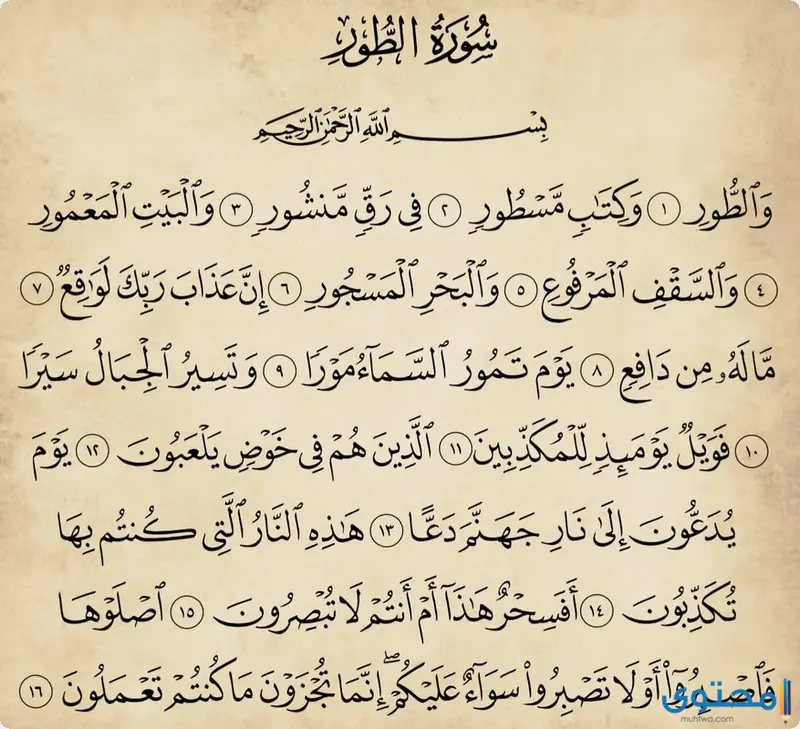 سُورَةُ الطُّورِ
بِسْمِ ٱللَّهِ ٱلرَّحْمَٰنِ ٱلرَّحِيمِ
وَٱلطُّورِ ١ وَكِتَٰبٖ مَّسۡطُورٖ ٢ فِي رَقّٖ مَّنشُورٖ ٣ وَٱلۡبَيۡتِ ٱلۡمَعۡمُورِ
٤ وَٱلسَّقۡفِ ٱلۡمَرۡفُوعِ ٥ وَٱلۡبَحۡرِ ٱلۡمَسۡجُورِ ٦ إِنَّ عَذَابَ رَبِّكَ لَوَٰقِعٞ ٧
مَّا لَهُۥ مِن دَافِعٖ ٨ يَوۡمَ تَمُورُ ٱلسَّمَآءُ مَوۡرٗا ٩ وَتَسِيرُ ٱلۡجِبَالُ سَيۡرٗا
١٠ فَوَيۡلٞ يَوۡمَئِذٖ لِّلۡمُكَذِّبِينَ ١١ ٱلَّذِينَ هُمۡ فِي خَوۡضٖ يَلۡعَبُونَ ١٢ يَوۡمَ
يُدَعُّونَ إِلَىٰ نَارِ جَهَنَّمَ دَعًّا ١٣ هَٰذِهِ ٱلنَّارُ ٱلَّتِي كُنتُم بِهَا
تُكَذِّبُونَ ١٤ أَفَسِحۡرٌ هَٰذَآ أَمۡ أَنتُمۡ لَا تُبۡصِرُونَ ١٥ ٱصۡلَوۡهَا
فَٱصۡبِرُوٓاْ أَوۡ لَا تَصۡبِرُواْ سَوَآءٌ عَلَيۡكُمۡۖ إِنَّمَا تُجۡزَوۡنَ مَا كُنتُمۡ تَعۡمَلُونَ ١٦
محتوى
muhtwa.com